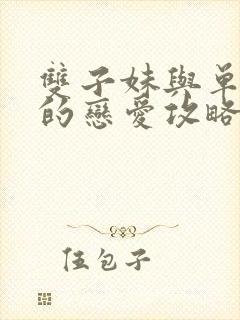 雙子妹與單
的戀愛攻略
伍包子